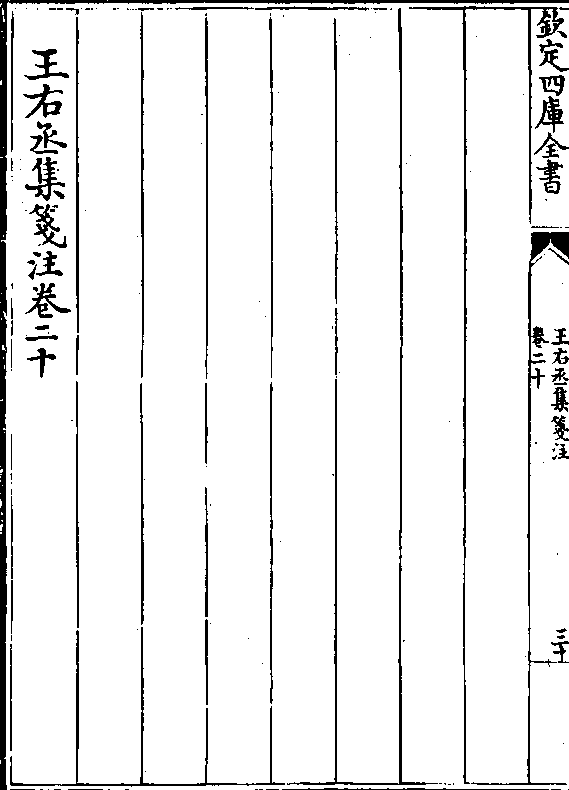 欽定四庫全書
王右丞集箋注
卷二十
三十
王右丞集箋注卷二十